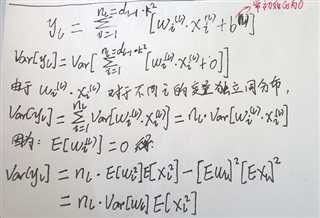 常初始化为0
y_l = \sum_{i=1}^{n_l=d_{l-1} \cdot k^2} [w_i^{(l)} \cdot x_i^{(l)} + b^{(l)}]
Var[y_l] = Var[\sum_{i=1}^{n_l=d_{l-1} \cdot k^2} [w_i^{(l)} \cdot x_i^{(l)} + 0]
由于 w_i^{(l)} \cdot x_i^{(l)} 对于不同 i 的变量独立同分布,
Var[y_l] = \sum_{i=1}^{n_l} Var[w_i^{(l)} \cdot x_i^{(l)}] = n_l \cdot Var[w_i^{(l)} \cdot x_i^{(l)}]
因为: E[w_i^{(l)}] = 0
Var[y_l] = n_l \cdot E[w_i^2] E[x_i^2] - [E w_i]^2 [E x_i]^2
= n_l \cdot Var[w_i] E[x_i^2]